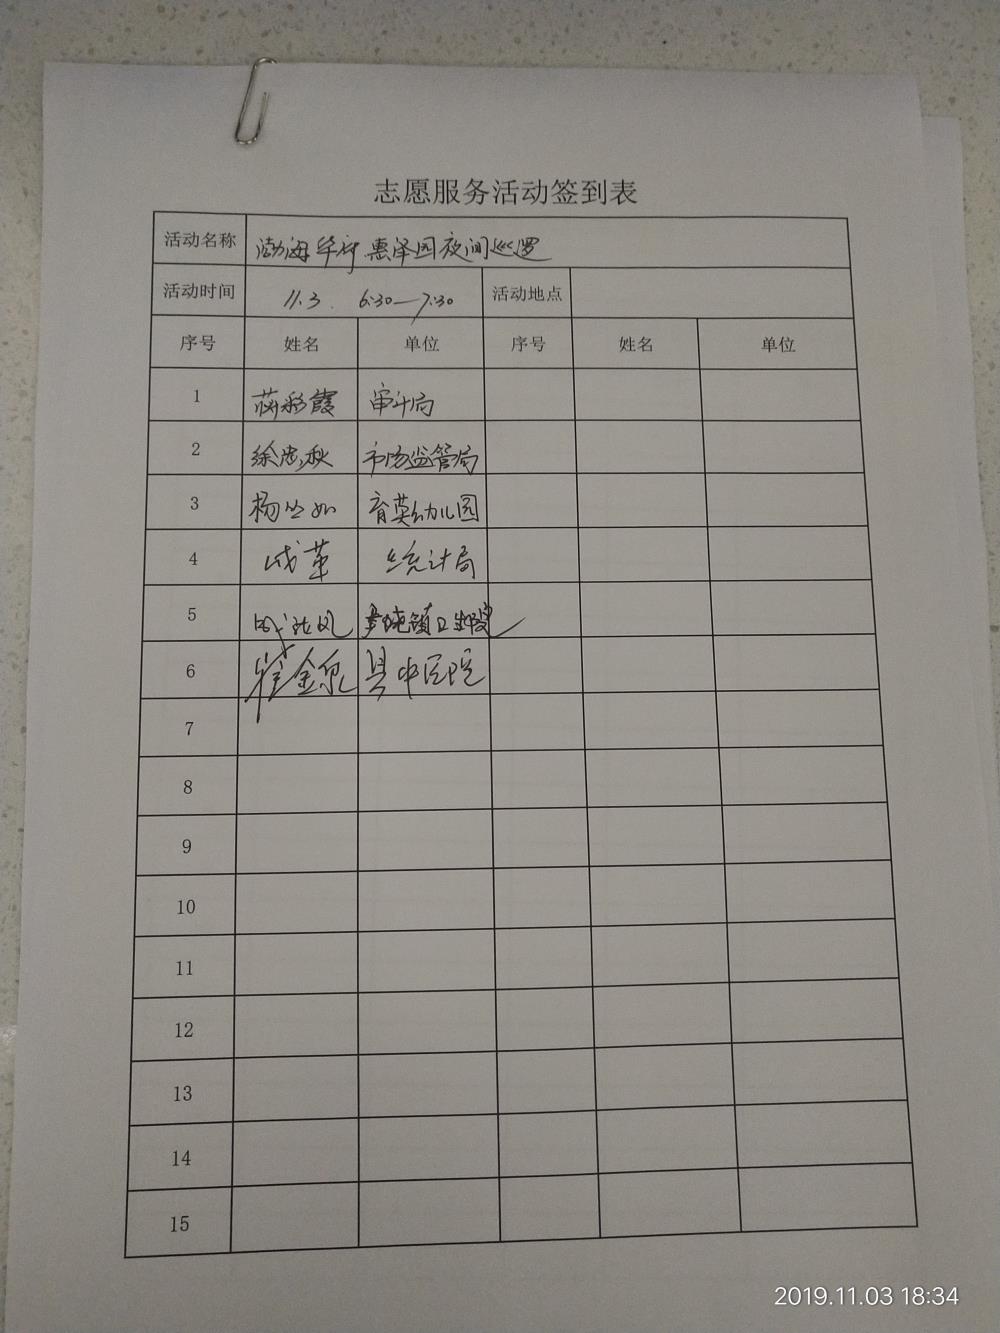 志愿服务活动签到表
活动名称 渤海华府惠泽园夜间巡逻
活动时间 11.3. 6:30—7:30 活动地点
序号 姓名 单位 序号 姓名 单位
1 蒋彩霞 审计局
2 徐忠秋 市场监管局
3 杨丛如 育英幼儿园
4 成革 统计局
5 镇卫生院
6 崔金泉 县中医院
7
8
9
10
11
12
13
14
15
2019.11.03 18:34